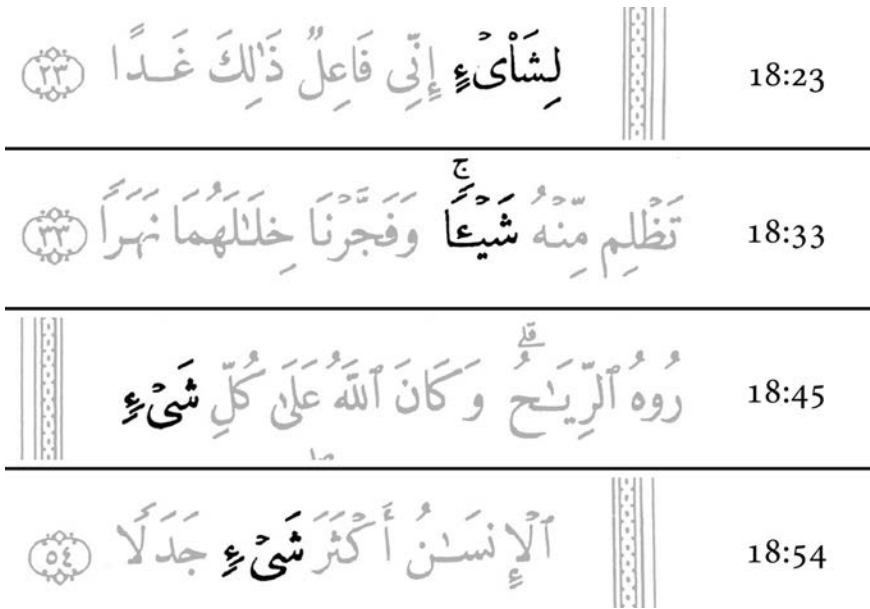 لِشَا۟ىْءٍ إِنِّى فَاعِلٌ ذَٰلِكَ غَدًا ٢٣ 18:23
تَظْلِم مِّنْهُ شَيْـًٔا ۚ وَفَجَّرْنَا خِلَـٰلَهُمَا نَهَرًا ٣٣ 18:33
رُوهُ ٱلرِّيَـٰحُ ۗ وَكَانَ ٱللَّهُ عَلَىٰ كُلِّ شَىْءٍ 18:45
ٱلْإِنسَـٰنُ أَكْثَرَ شَىْءٍ جَدَلًا ٥٤ 18:54